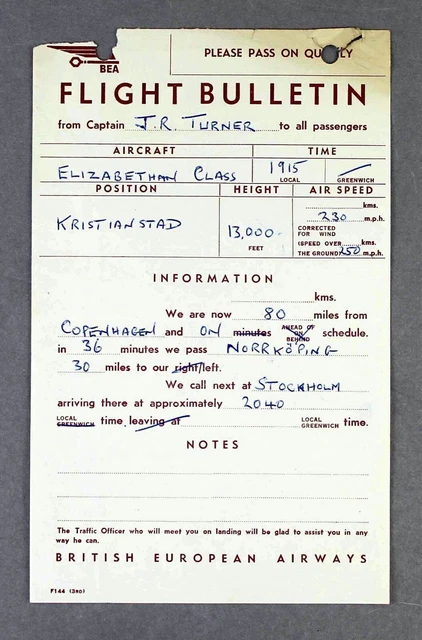 BEA
PLEASE PASS ON
FLIGHT BULLETIN
from Captain J.R. TURNER to all passengers
AIRCRAFT TIME
ELIZABETHAN CLASS 1915
LOCAL GREENWICH
POSITION HEIGHT AIR SPEED
kms.
KRISTIANSTAD 13,000 230 m.p.h.
FEET
CORRECTED
FOR WIND
(SPEED OVER kms.
THE GROUND) 250 m.p.h.
INFORMATION
kms.
We are now 80 miles from
COPENHAGEN and ON minutes AHEAD OF BEHIND schedule.
in 36 minutes we pass NORRKÖPING
30 miles to our right/left.
We call next at STOCKHOLM
arriving there at approximately 2040
LOCAL GREENWICH time, leaving at LOCAL GREENWICH time.
NOTES
The Traffic Officer who will meet you on landing will be glad to assist you in any
way he can.
BRITISH EUROPEAN AIRWAYS
F144 (3RD)